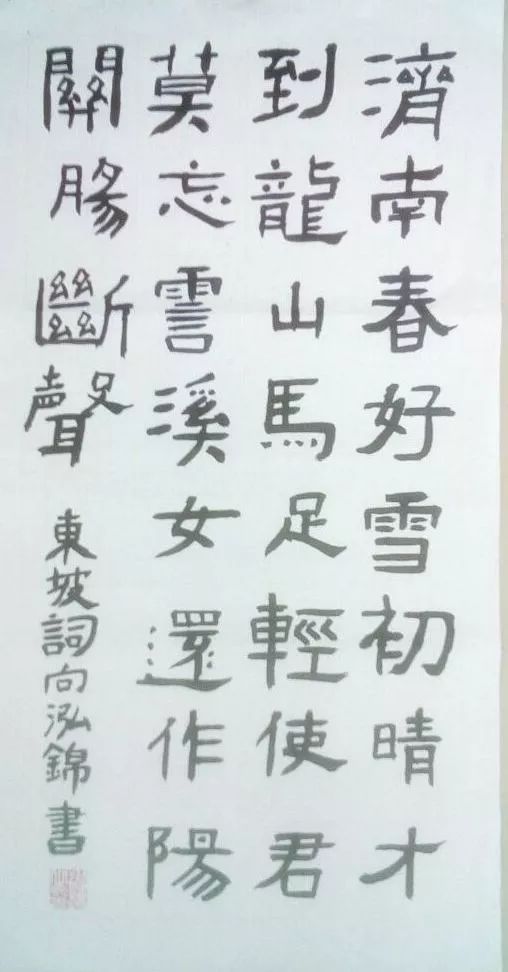 濟南春好雪初晴才
到龍山馬足輕使君
莫忘霅溪女還作陽
關腸斷聲
東坡詞向泓錦書